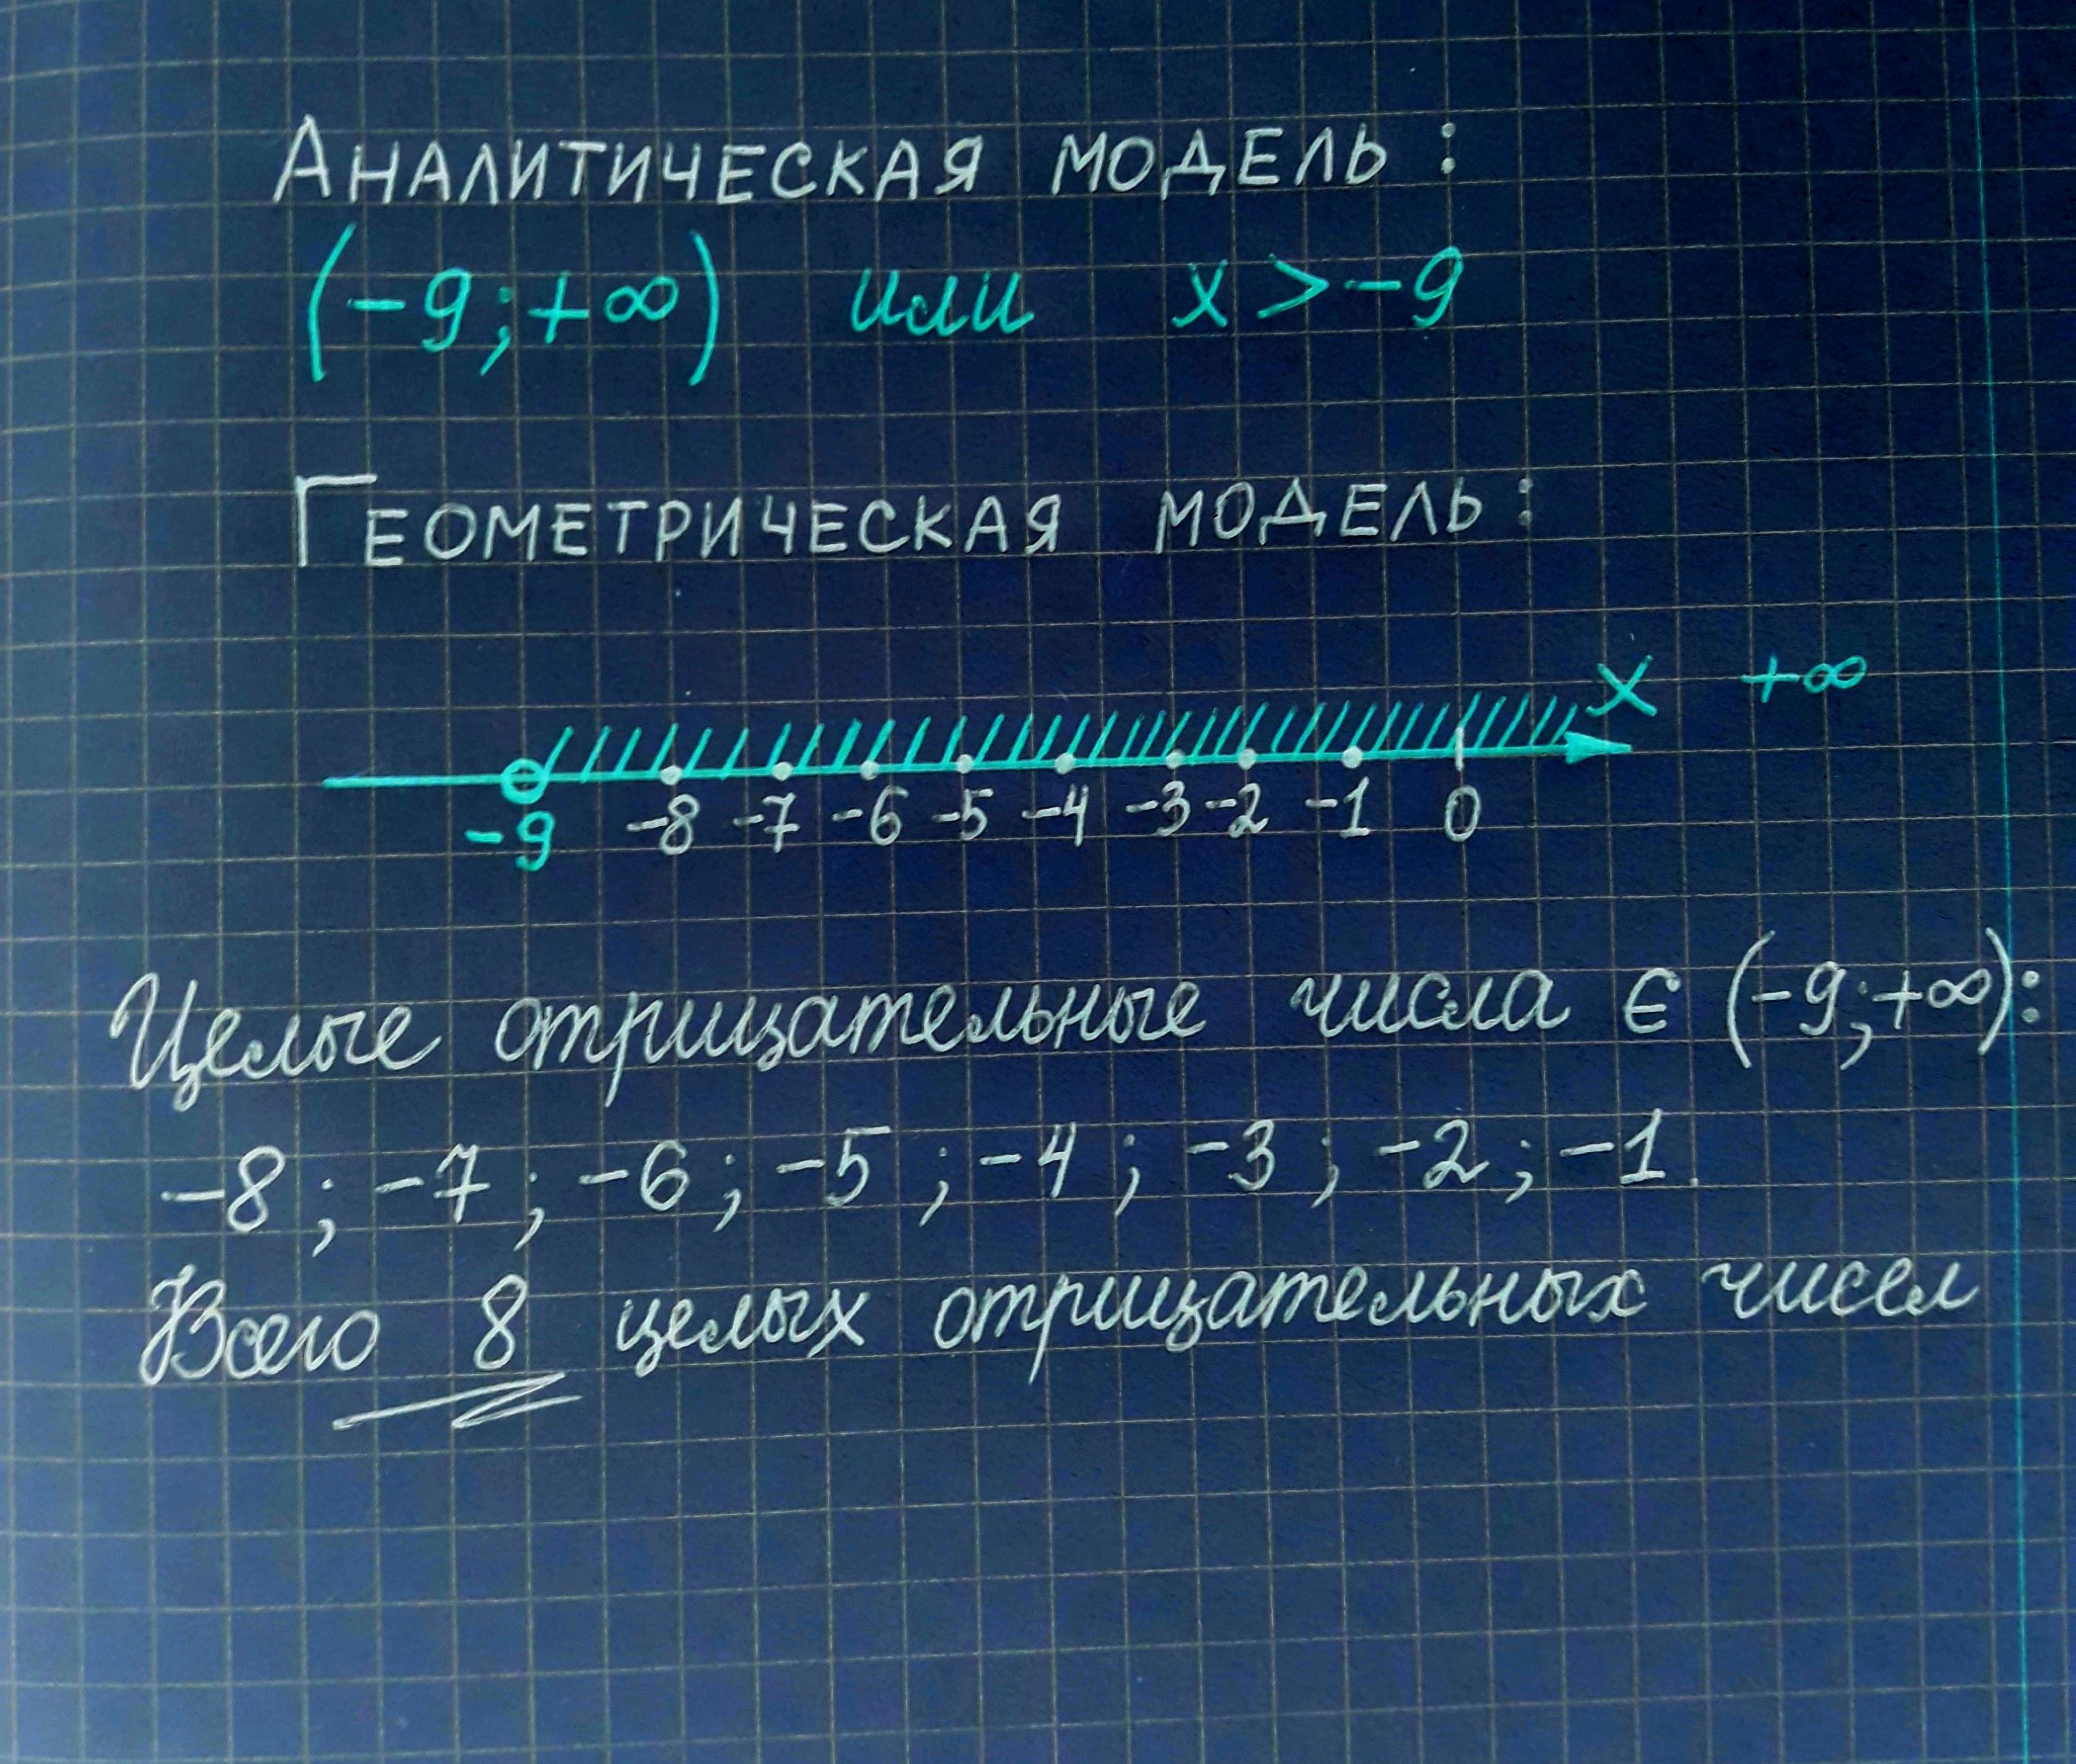 Аналитическая модель:
(-9; +∞) или x > -9
Геометрическая модель:
x +∞
-9 -8 -7 -6 -5 -4 -3 -2 -1 0
Целые отрицательные числа ∈ (-9; +∞):
-8; -7; -6; -5; -4; -3; -2; -1.
Всего 8 целых отрицательных чисел